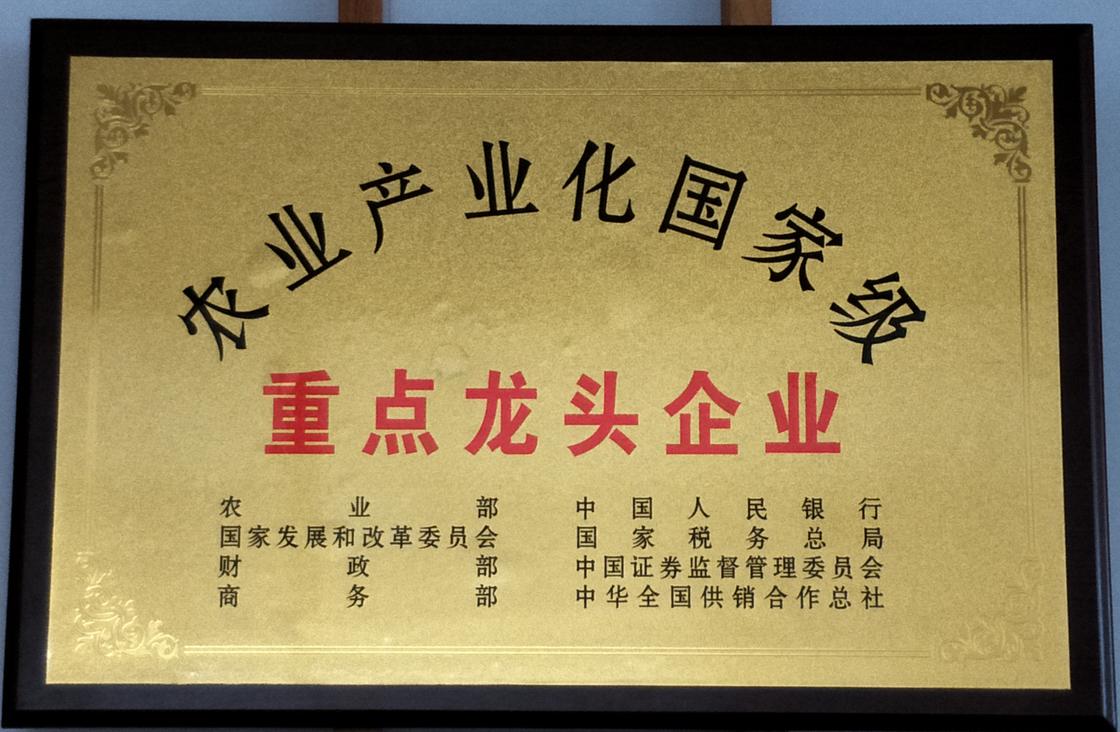 农业产业化国家级
重点龙头企业
农业部
国家发展和改革委员会
财政部
商务部
中国人民银行
国家税务总局
中国证券监督管理委员会
中华全国供销合作总社